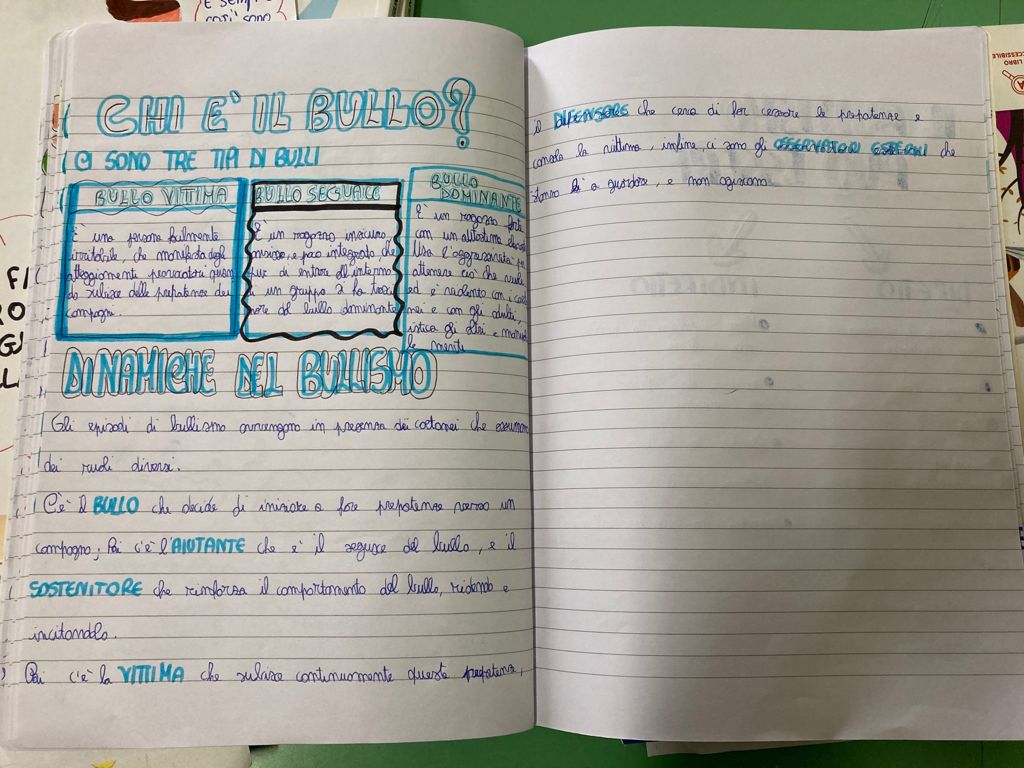 CHI E' IL BULLO?
CI SONO TRE TIPI DI BULLI
BULLO VITTIMA
È una persona facilmente
irritabile, che manifesta degli
atteggiamenti provocatori quan
do subisce delle prepotenze dei
compagni.
BULLO SEGUACE
È un ragazzo insicuro,
ansioso, e poco integrato, che
pur di entrare all'interno
di un gruppo si fa trasci
nare dal bullo dominante
BULLO
DOMINANTE
È un ragazzo forte
con un autostima elevata
Usa l'aggressività per
ottenere ciò che vuole
ed è violento con i coeta
nei e con gli adulti,
istiga gli altri e
mente
DINAMICHE DEL BULLISMO
Gli episodi di bullismo avvengono in presenza dei coetanei che assumono
dei ruoli diversi.
C'è il BULLO che decide di iniziare a fare prepotenze verso un
compagno, Poi c'è l'AIUTANTE che è il seguace del bullo, e il
SOSTENITORE che rinforza il comportamento del bullo, ridendo e
incitandolo.
Poi c'è la VITTIMA che subisce continuamente queste prepotenze,
il DIFENSORE che cerca di far cessare le prepotenze e
consola la vittima, infine, ci sono gli OSSERVATORI ESTERNI che
stanno lì a guardare, e non agiscono
LIBRO
ACCESSIBILE